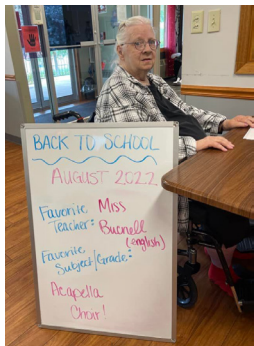 BACK TO SCHOOL
AUGUST 2022
Favorite Miss
Teacher: Bucnell
(english)
Favorite
Subject/Grade:
Acapella
Choir!